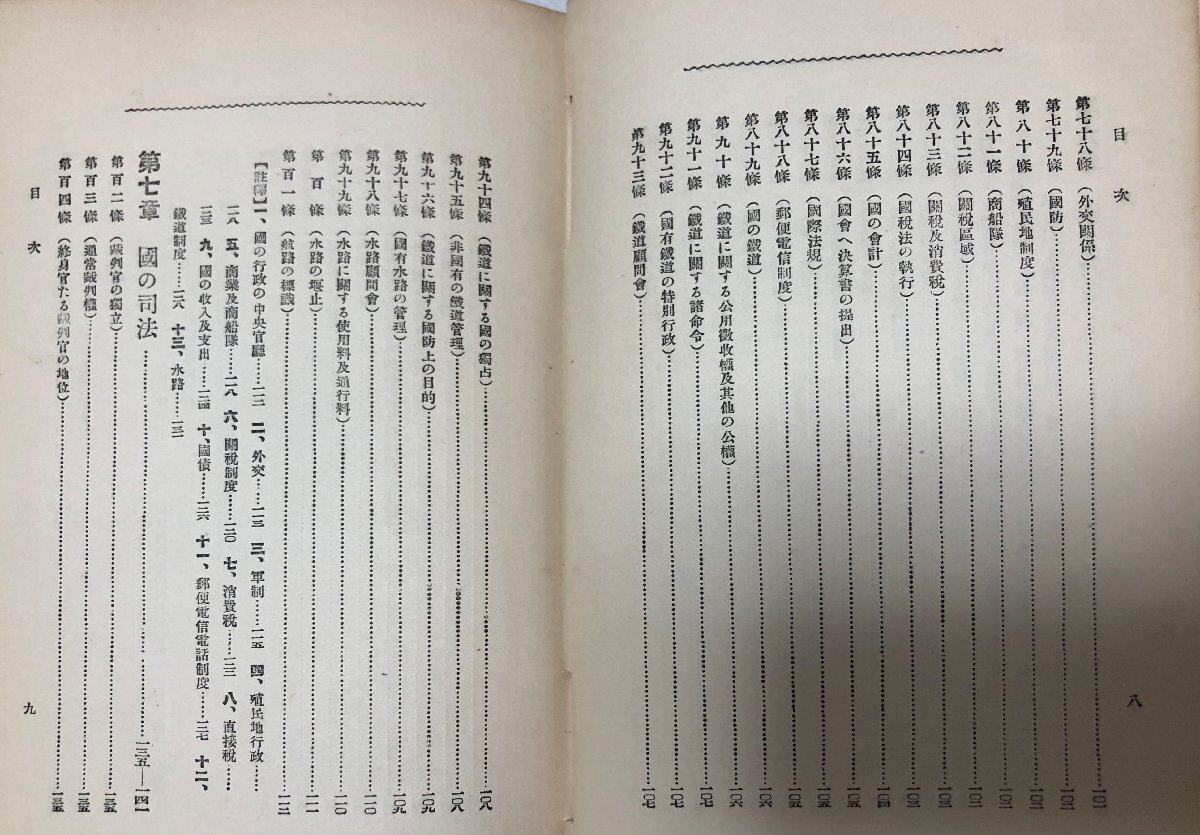 目次
第七十八條(外交關係)……一〇一
第七十九條(國防)……一〇二
第八十條(殖民地制度)……一〇二
第八十一條(商船隊)……一〇二
第八十二條(關稅區域)……一〇二
第八十三條(關稅及消費稅)……一〇三
第八十四條(國稅法の執行)……一〇三
第八十五條(國の會計)……一〇四
第八十六條(國會へ決算書の提出)……一〇五
第八十七條(國際法規)……一〇五
第八十八條(郵便電信制度)……一〇五
第八十九條(國の鐵道)……一〇六
第九十條(鐵道に關する公用徵收權及其他の公權)……一〇六
第九十一條(鐵道に關する諸命令)……一〇七
第九十二條(國有鐵道の特別行政)……一〇七
第九十三條(鐵道顧問會)……一〇七
八
第九十四條(鐵道に關する國の獨占)……一〇八
第九十五條(非國有の鐵道管理)……一〇八
第九十六條(鐵道に關する國防上の目的)……一〇九
第九十七條(國有水路の管理)……一〇九
第九十八條(水路顧問會)……一一〇
第九十九條(水路に關する使用料及通行料)……一一〇
第百條(水路の堰止)……一一一
第百一條(航路の標識)……一一二
【註釋】一、國の行政の中央官廳……一一二 二、外交……一一三 三、軍制……一一五 四、殖民地行政……
一一八 五、商業及商船隊……一一八 六、關稅制度……一二〇 七、消費稅……一二二 八、直接稅……
一二三 九、國の收入及支出……一二四 十、國債……一二六 十一、郵便電信電話制度……一二七 十二、
鐵道制度……一二八 十三、水路……一三一
第七章 國の司法……一三五—一四一
第百二條(裁判官の獨立)……一三五
第百三條(通常裁判權)……一三五
第百四條(終身官たる裁判官の地位)……一三五
目次
九